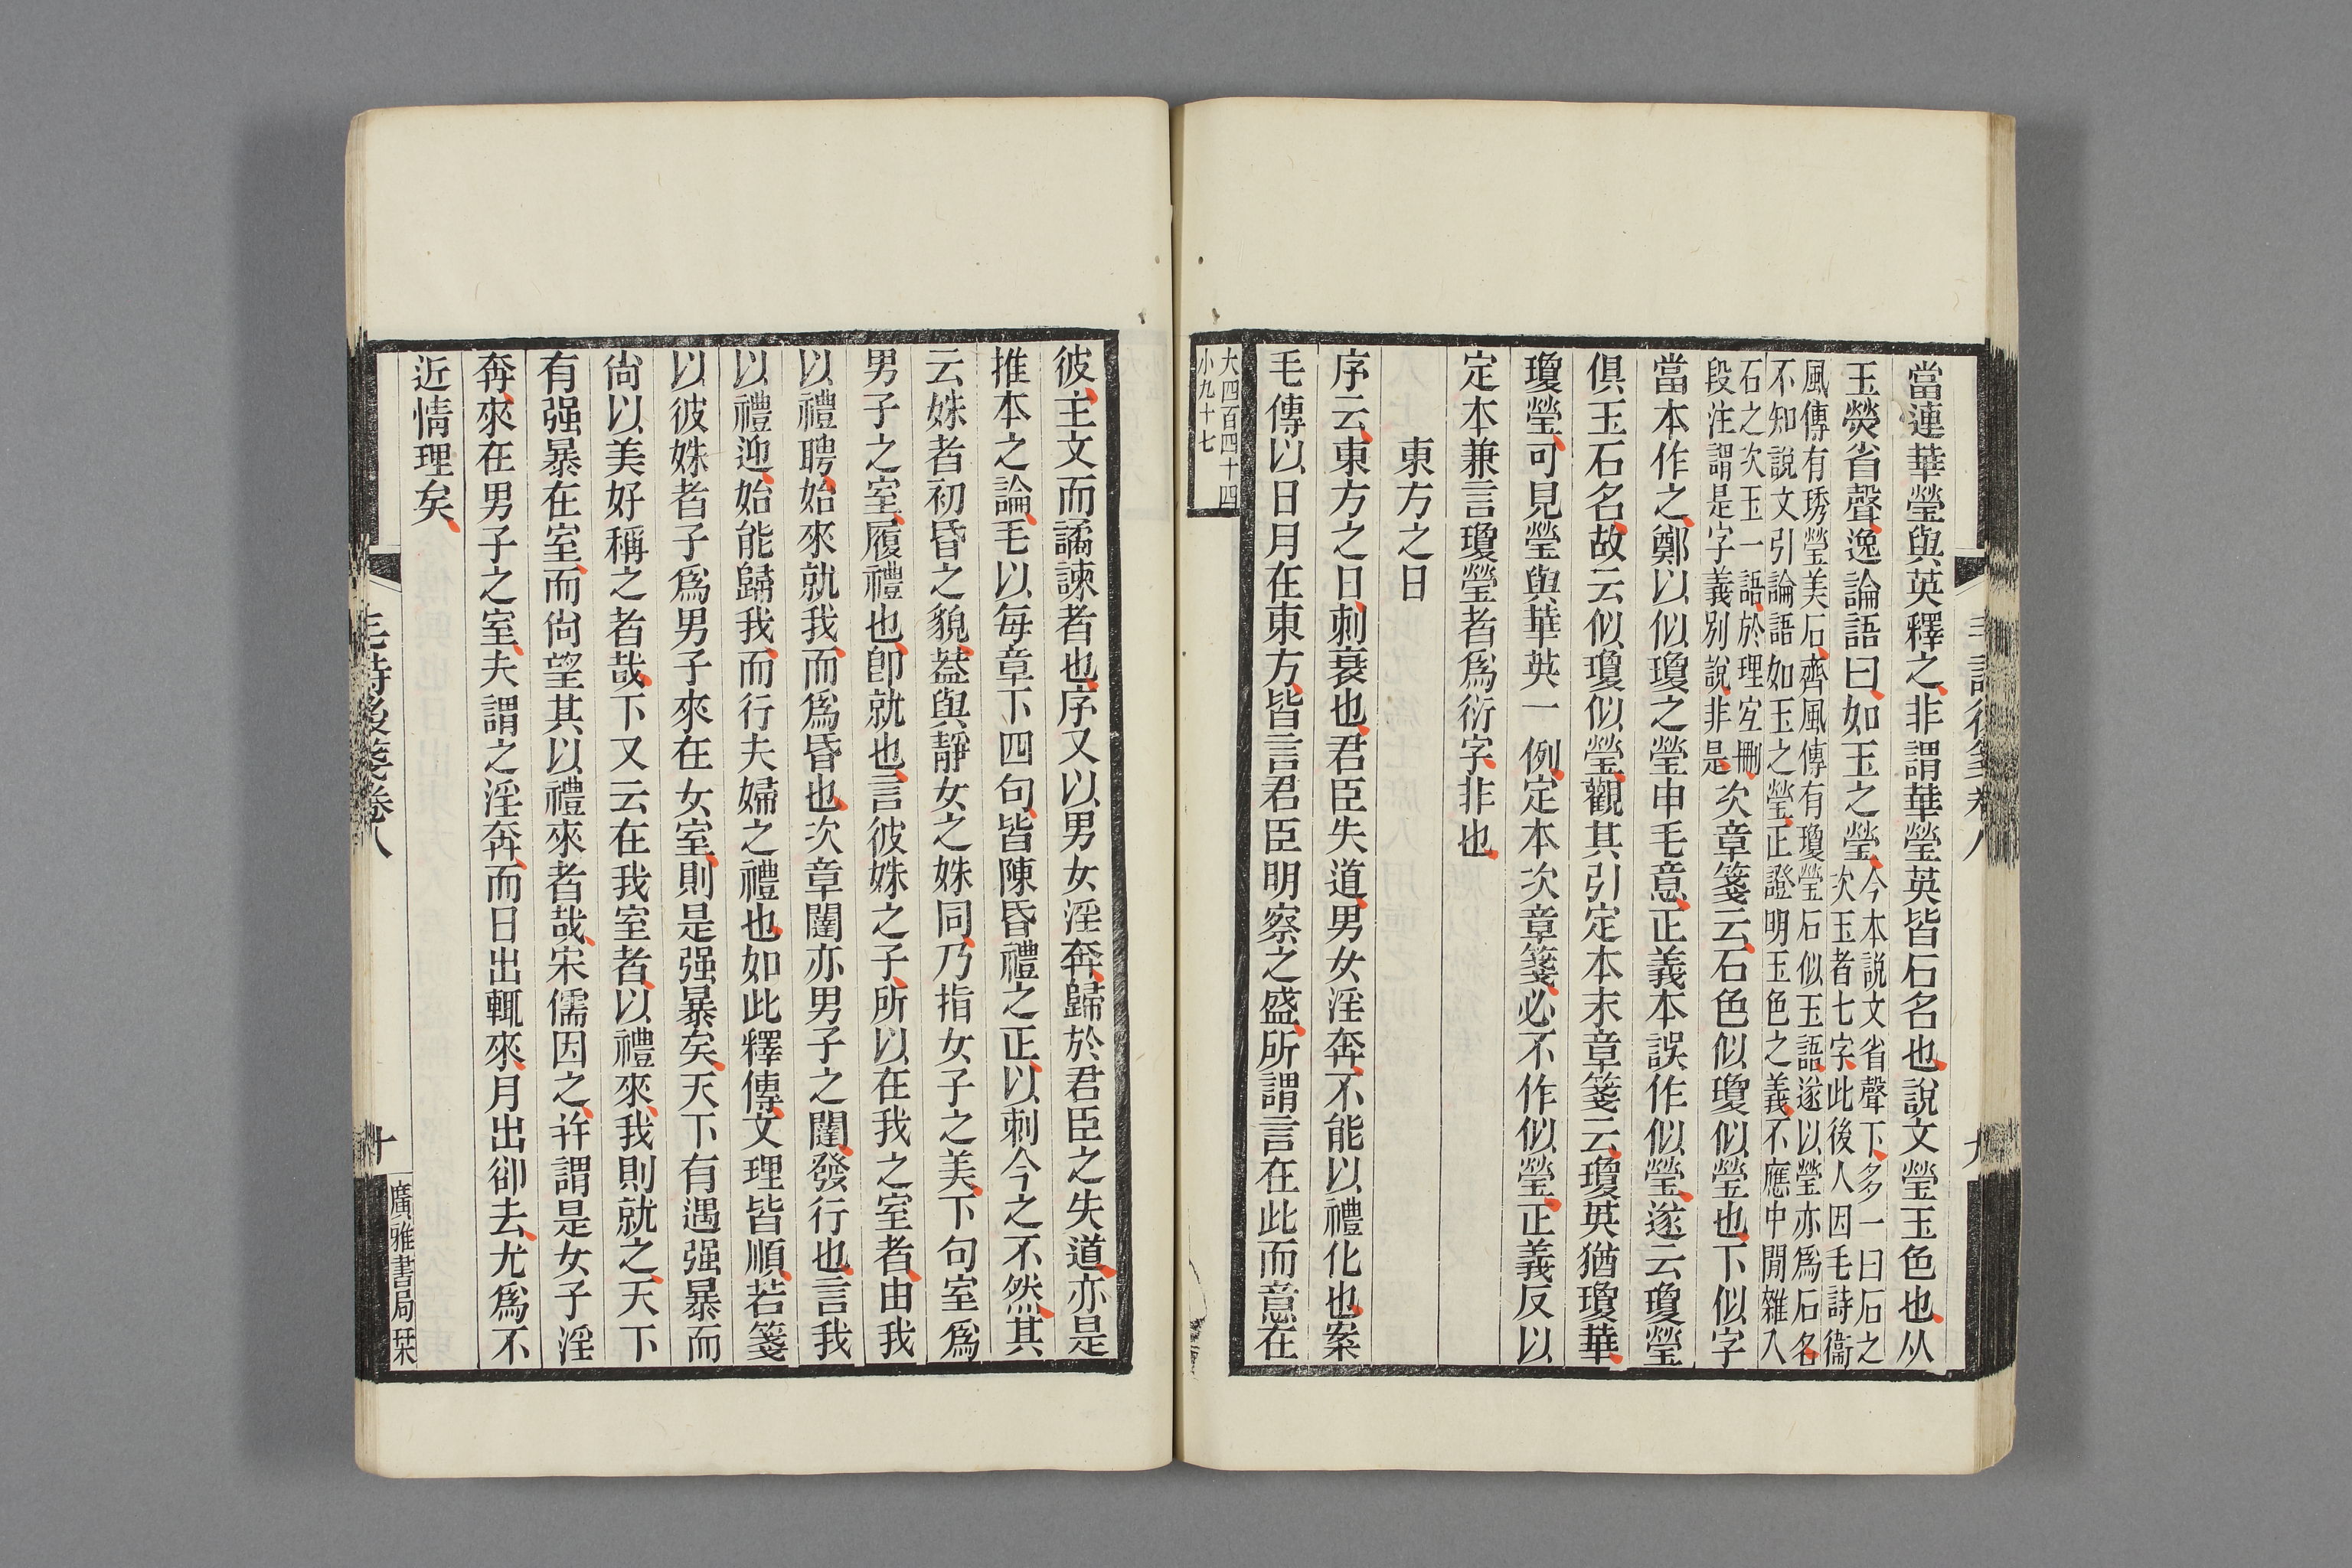 當連華瑩與英釋之非謂華瑩英皆石名也說文瑩玉色也从
玉熒省聲逸論語曰如玉之瑩今本說文省聲下多一曰石之
次玉者七字此後人因毛詩衞
風傳有琇瑩美石齊風傳有瓊瑩石似玉語遂以瑩亦爲石名
不知說文引論語如玉之瑩正證明玉色之義不應中閒雜入
石之次玉一語於理宐刪
段注謂是字義別說非是次章箋云石色似瓊似瑩也下似字
當本作之鄭以似瓊之瑩申毛意正義本誤作似瑩遂云瓊瑩
俱玉石名故云似瓊似瑩觀其引定本末章箋云瓊英猶瓊華
瓊瑩可見瑩與華英一例定本次章箋必不作似瑩正義反以
定本兼言瓊瑩者爲衍字非也
東方之日
序云東方之日刺衰也君臣失道男女淫奔不能以禮化也案
毛傳以日月在東方皆言君臣明察之盛所謂言在此而意在
大四百四十四
小九十七
彼主文而譎諫者也序又以男女淫奔歸於君臣之失道亦是
推本之論毛以每章下四句皆陳昏禮之正以刺今之不然其
云姝者初昏之貌葢與靜女之姝同乃指女子之美下句室爲
男子之室履禮也卽就也言彼姝之子所以在我之室者由我
以禮聘始來就我而爲昏也次章闥亦男子之闥發行也言我
以禮迎始能歸我而行夫婦之禮也如此釋傳文理皆順若箋
以彼姝者子爲男子來在女室則是强暴矣天下有遇强暴而
尙以美好稱之者哉下又云在我室者以禮來我則就之天下
有强暴在室而尙望其以禮來者哉宋儒因之幷謂是女子淫
奔來在男子之室夫謂之淫奔而日出輒來月出卻去尤爲不
近情理矣
毛詩後箋卷八
十
廣雅書局栞